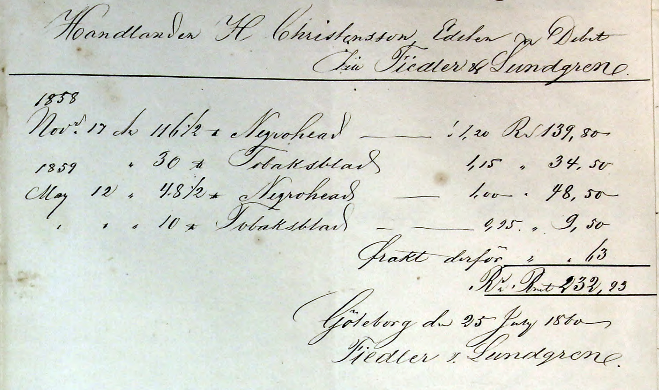 Handlanden H Christensson, Edslan in Debet
från Fiedler & Lundgren.
1858
Novr. 17 116 1/2 ℔ Negrohead — 1,20 Rd 139,80
1859 " 30 ℔ Tobaksblad 1,15 " 34,50
May 12 " 48 1/2 ℔ Negrohead — 1,00 " 48,50
" " " 10 ℔ Tobaksblad — 0,95 " 9,50
frakt derför " " 63
Rd Rmt 232,93
Göteborg den 25 July 1860
Fiedler & Lundgren.